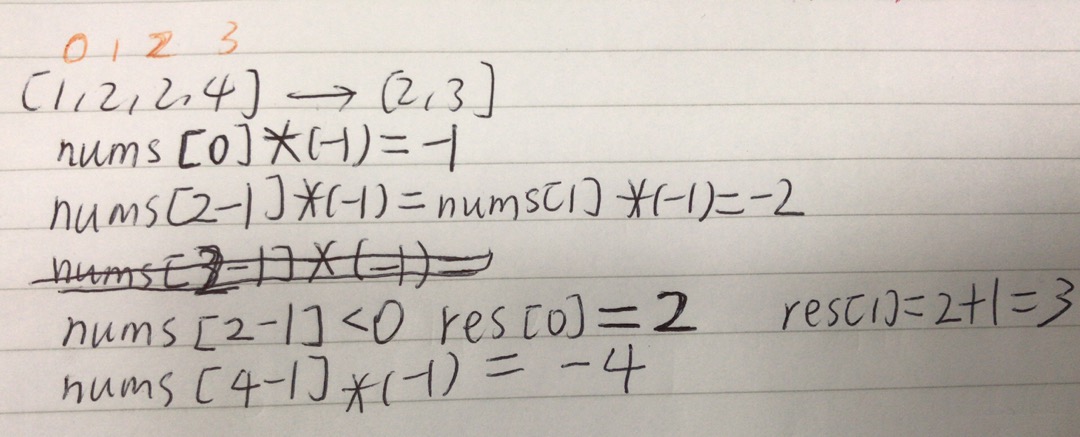 0 1 2 3
[1,2,2,4] → [2,3]
nums[0]*(-1)=-1
nums[2-1]*(-1)=nums[1]*(-1)=-2
nums[2-1]*(-1)=
nums[2-1]<0 res[0]=2 res[1]=2+1=3
nums[4-1]*(-1)=-4